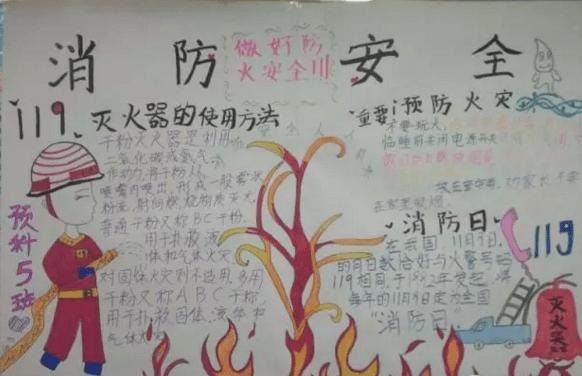 消防安全
做好防
火安全!!!
119灭火器的使用方法
干粉灭火器是利用
二氧化碳或氮气
作动力,将干粉从
喷嘴内喷出,形成一股雾状
粉流,射向燃烧物质灭火。
普通干粉又称BC干粉,
用于扑救液
体和气体火灾
对固体火灾则不适用.多用
干粉又称ABC干粉,
用于扑救固体、液体和
气体火灾
预科5班
重要!预防火灾
不要玩火。
临睡前关闭电源开关
劝家长不要
在家里吸烟
消防日
119
在我国,11月9日
的月日数恰好与火警号码
119相同,于1992年发起,将
每年的11月9日定为全国
“消防日”
灭火器